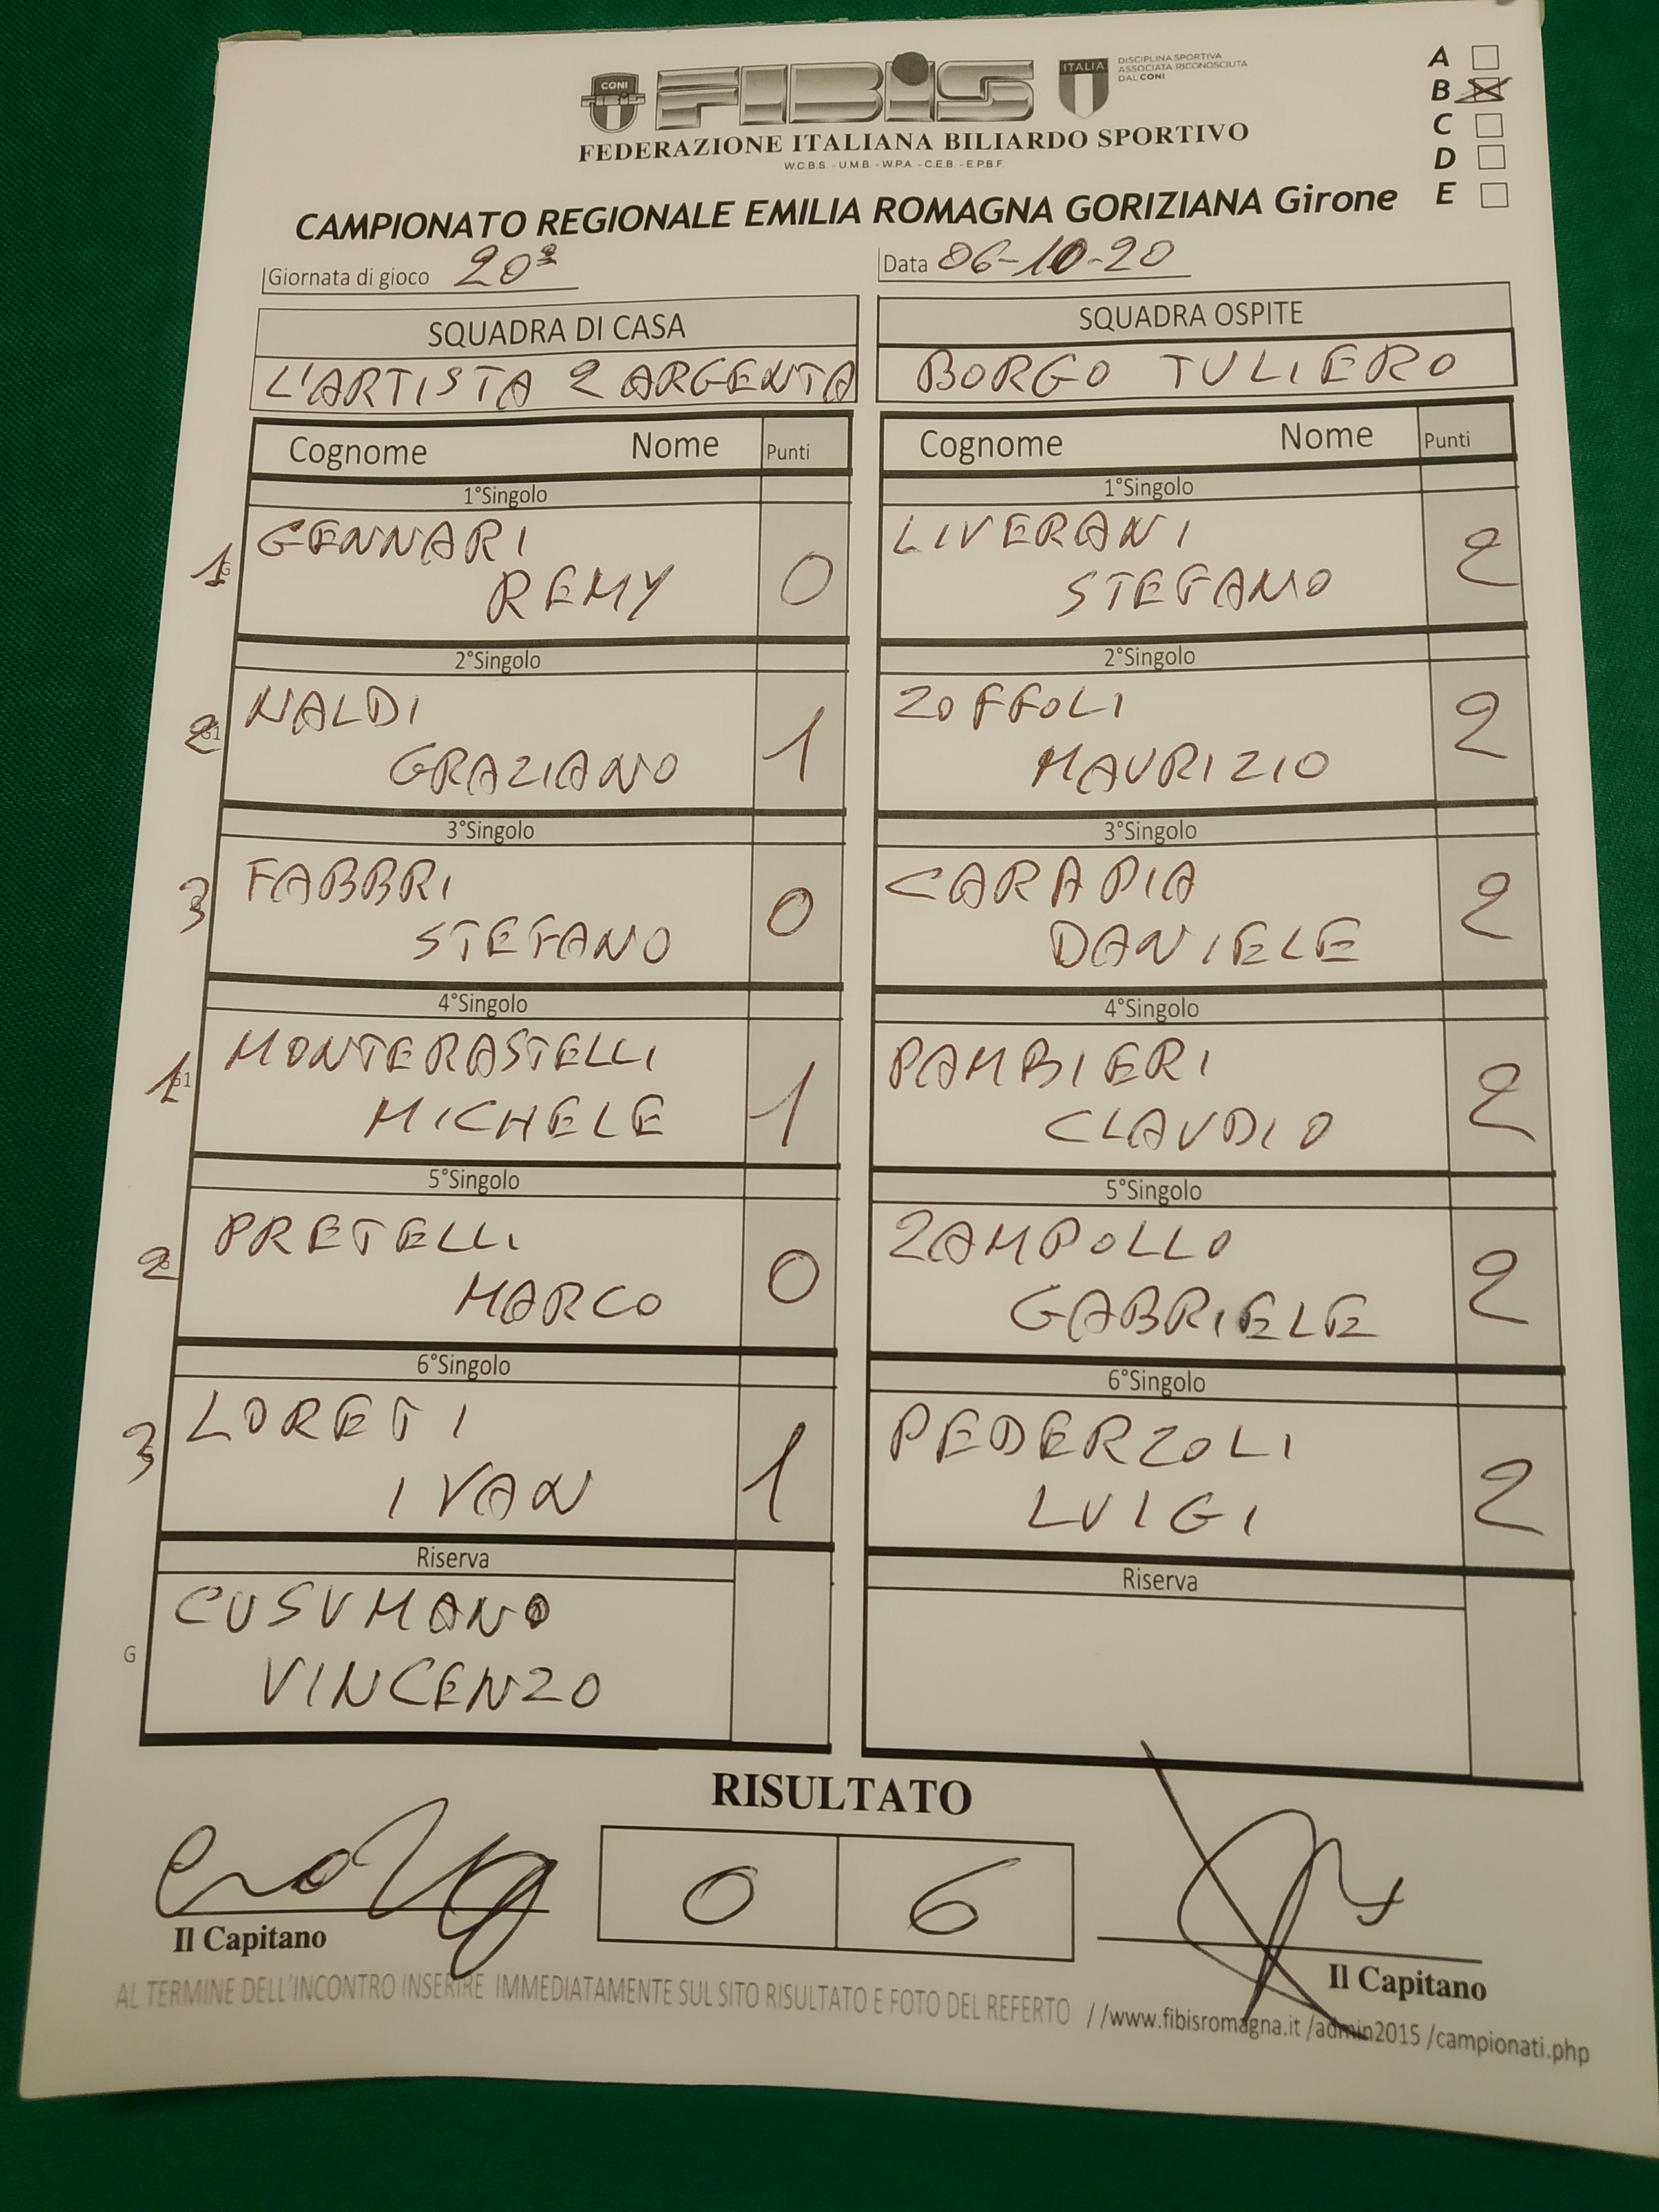 CONI
FIBIS
FIBIS
ITALIA
DISCIPLINA SPORTIVA
ASSOCIATA RICONOSCIUTA
DAL CONI
FEDERAZIONE ITALIANA BILIARDO SPORTIVO
W.C.B.S. - U.M.B. - W.P.A. - C.E.B. - E.P.B.F.
A
B
C
D
E
CAMPIONATO REGIONALE EMILIA ROMAGNA GORIZIANA Girone
Giornata di gioco 20ª
Data 06-10-20
SQUADRA DI CASA
L'ARTISTA 2 ARGENTA
SQUADRA OSPITE
BORGO TULIERO
Cognome Nome Punti
Cognome Nome Punti
1°Singolo
1
GENNARI
REMY
0
1°Singolo
LIVERANI
STEFANO
2
2°Singolo
2
NALDI
GRAZIANO
1
2°Singolo
ZOFFOLI
MAURIZIO
2
3°Singolo
3
FABBRI
STEFANO
0
3°Singolo
CARAPIA
DANIELE
2
4°Singolo
1
MONTERASTELLI
MICHELE
1
4°Singolo
PAMBIERI
CLAUDIO
2
5°Singolo
2
PRETELLI
MARCO
0
5°Singolo
ZAMPOLLO
GABRIELE
2
6°Singolo
3
LORETI
IVAN
1
6°Singolo
PEDERZOLI
LUIGI
2
Riserva
G
CUSUMANO
VINCENZO
Riserva
RISULTATO
0 6
Il Capitano
Il Capitano
AL TERMINE DELL'INCONTRO INSERIRE IMMEDIATAMENTE SUL SITO RISULTATO E FOTO DEL REFERTO //www.fibisromagna.it /admin2015 /campionati.php